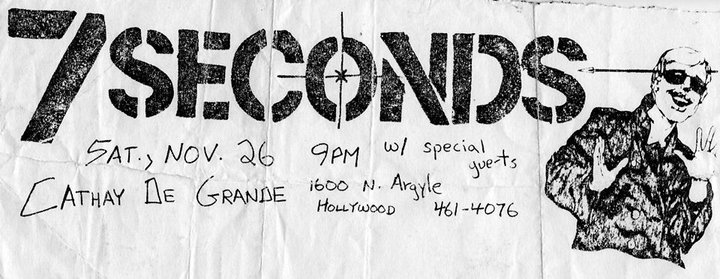 7SECONDS
SAT., NOV. 26 9PM w/ special guests
CATHAY DE GRANDE 1600 N. Argyle
HOLLYWOOD 461-4076